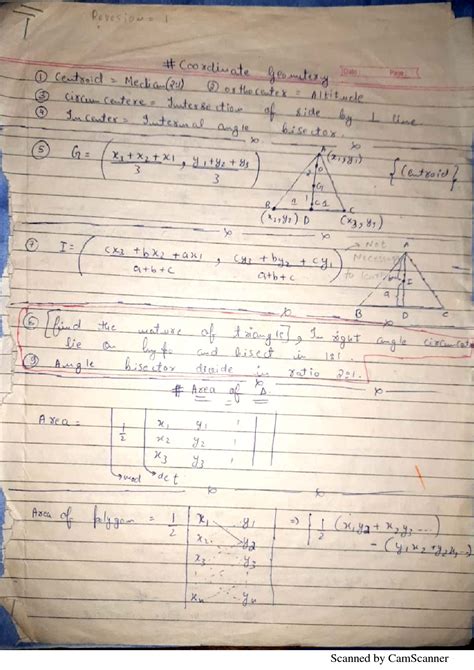 Revision = 1
# Coordinate Geometry
① Centroid = Median(2:1) ② orthocenter = Altitude
③ Circumcentere = Intersection of side by ⊥ line
④ Incenter = Internal angle bisector.
⑤ G = (x3+x2+x1/3 , y1+y2+y3/3) {Centroid}
A (x1,y1)
2
G
1
B D C
(x1,y2) (x3,y3)
⑦ I = (cx3+bx2+ax1/a+b+c , cy3+by2+cy1/a+b+c)
→ Not
Necessary
to
A
b
I
a
B D C
⑥ [find the nature of triangle], In right angle
lie on hyp and bisect in 1:1.
⑨ Angle bisector divide in ratio 2:1.
# Area of Δ
Area = 1/2 | x1 y1 1 |
x2 y2 1
x3 y3 1
→mod →det
Area of Polygon = 1/2 | x1 y1 | ⇒ | 1/2 (x1y2 + x2y3 ...)
x2 y2 - (y1x2+y2x3...)
x3 y3
xn yn
Scanned by CamScanner